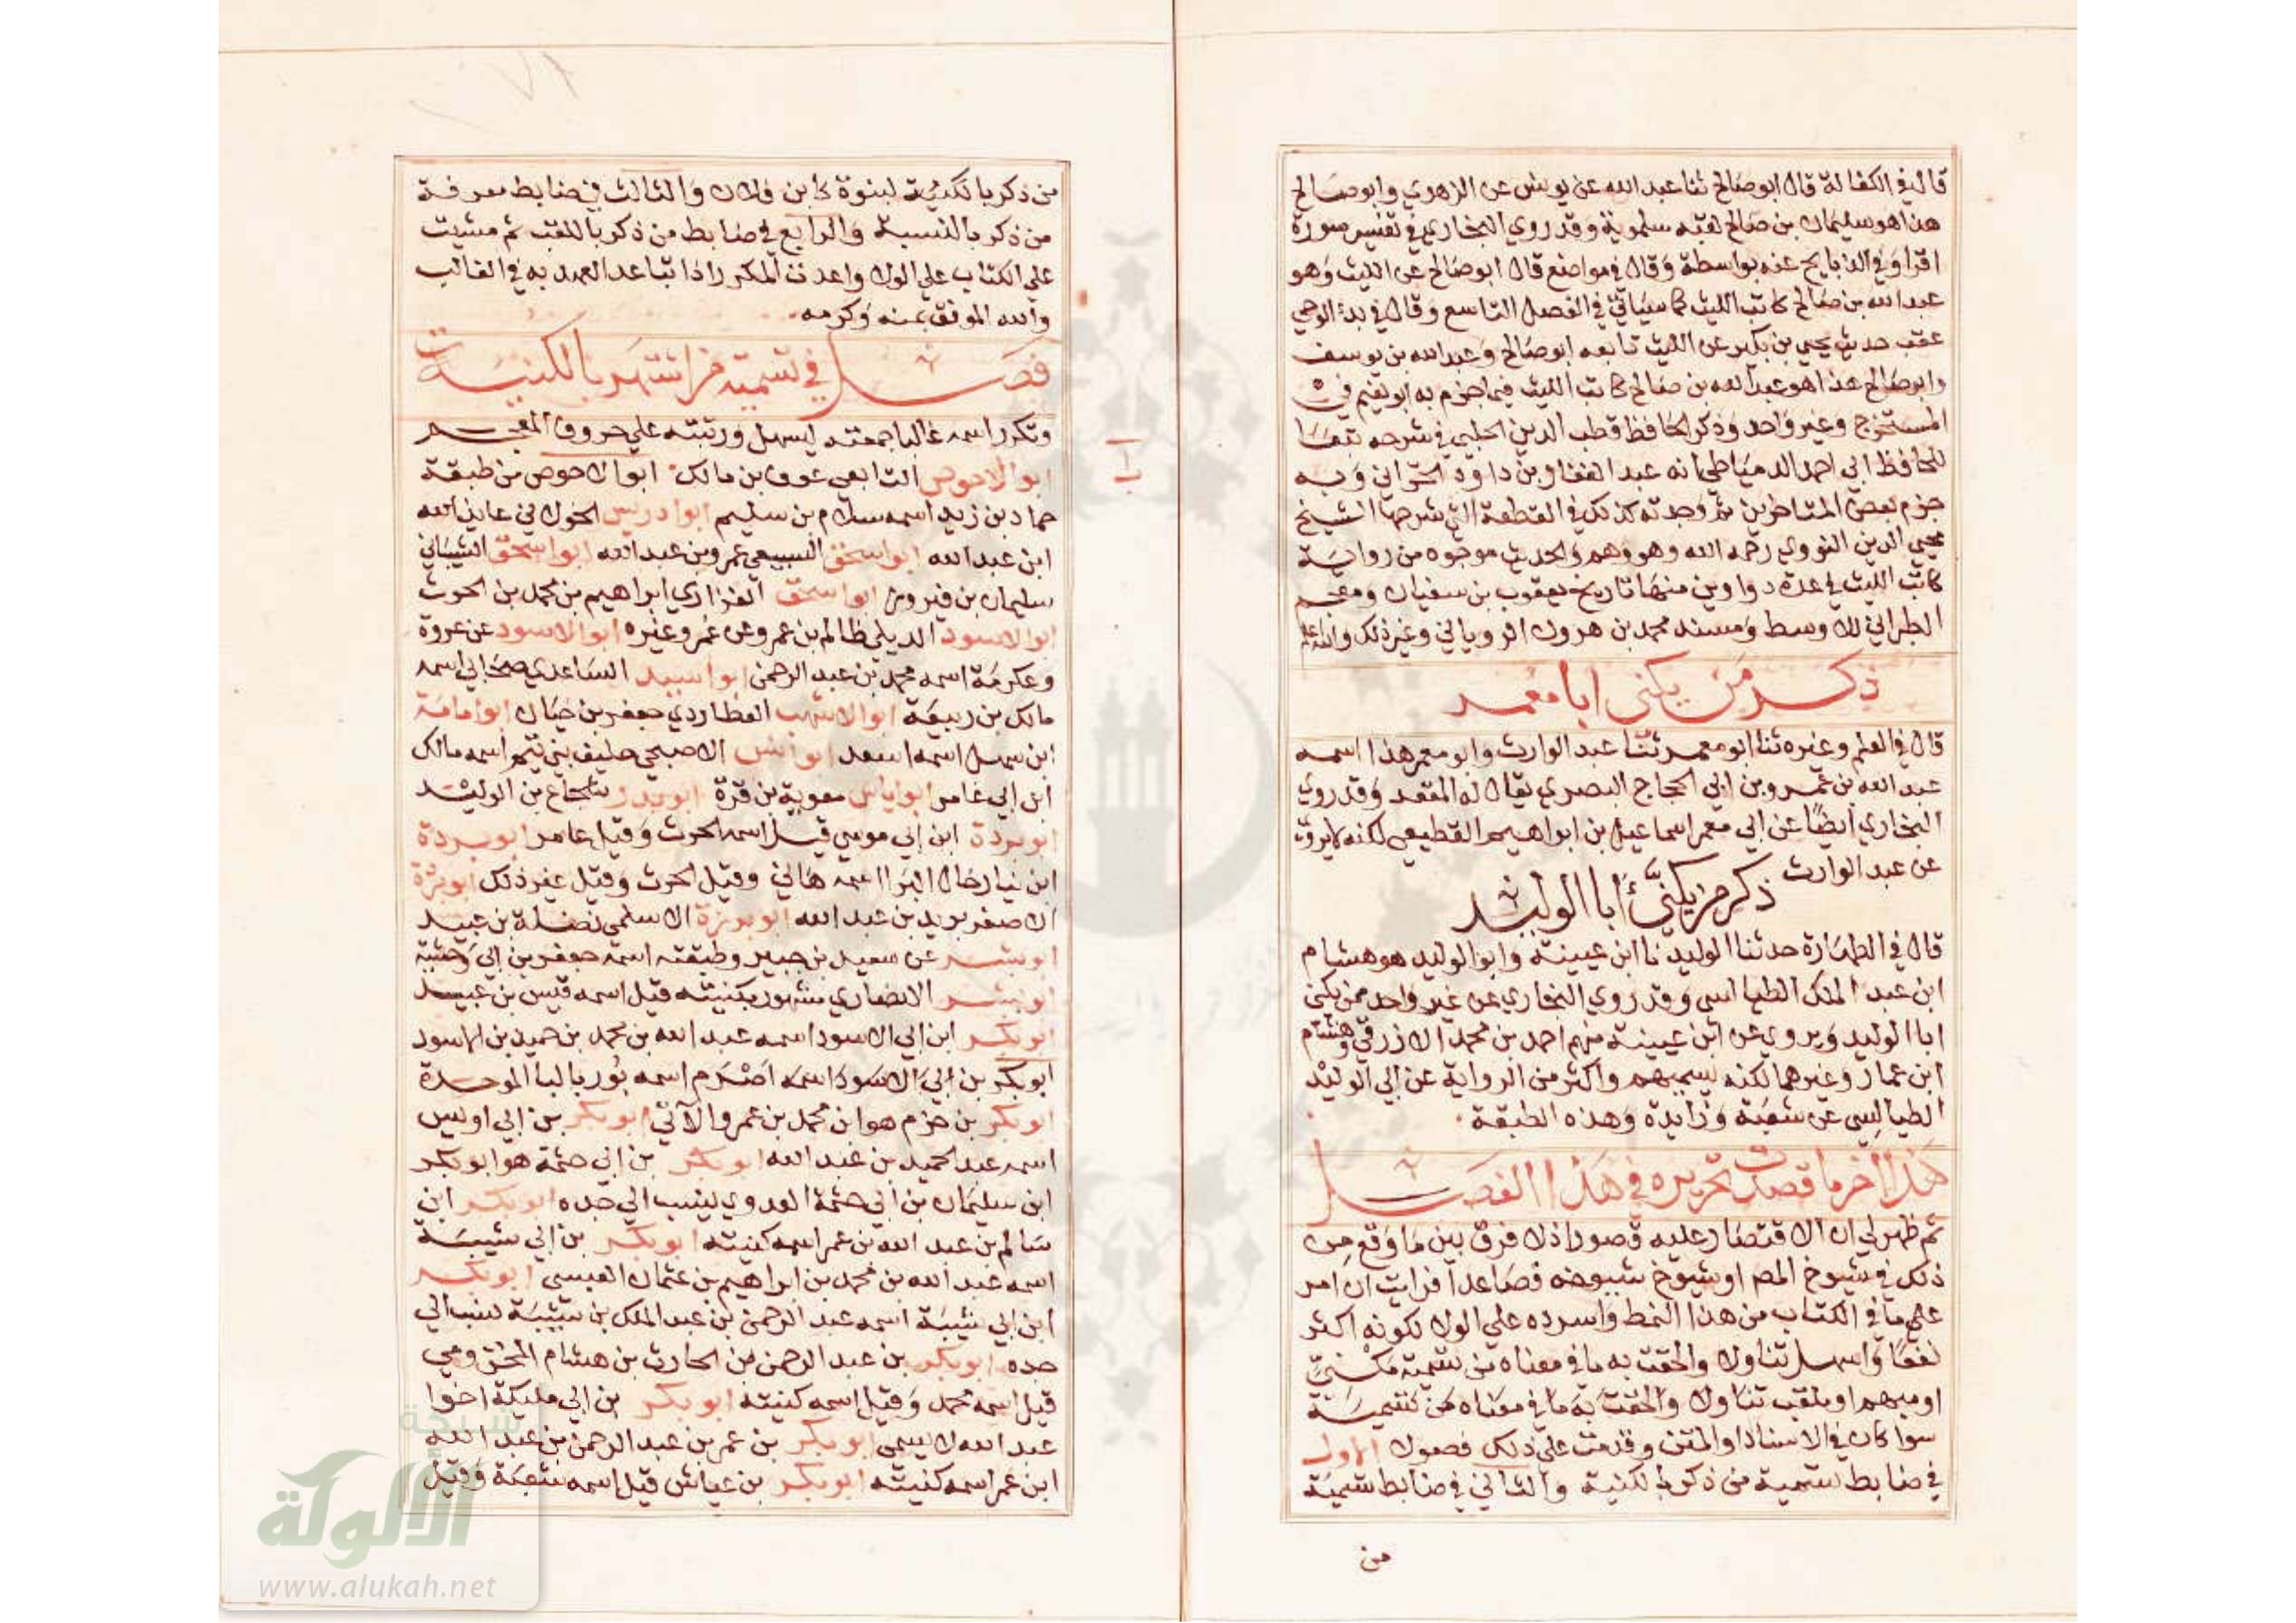 قال في الكفالة قال ابو صالح ثنا عبد الله عن يونس عن الزهري وابو صالح
هذا هو سليمان بن صالح لقبه سلموية وقد روي البخاري في تفسير سورة
اقرا وفي الذبايح عنه بواسطة وقال في مواضع قال ابو صالح عن الليث وهو
عبد الله بن صالح كاتب الليث كما سياتي في الفصل التاسع وقال في بدء الوحي
عقب حديث يحيي بن بكير عن الليث تابعه ابو صالح وعبد الله بن يوسف
وابو صالح هذا هو عبد الله بن صالح كاتب الليث فيما جزم به ابو نعيم في
المستخرج وغير واحد وذكر الحافظ قطب الدين الحلبي في شرحه تبعا
للحافظ ابي احمد الدمياطي انه عبد الغفار بن داود الحراني وبه
جزم بعض المتاخرين ثم وجدته كذلك في القطعة التي شرحها الشيخ
محيي الدين النووي رحمه الله وهو وهم والحديث موجود من رواية
كاتب الليث في عدة دواوين منها تاريخ يعقوب بن سفيان ومعجم
الطبراني الاوسط ومسند محمد بن هرون الروياني وغير ذلك والله اعلم
ذكر من يكني ابا معمر
قال في العلم وغيره ثنا ابو معمر ثنا عبد الوارث وابو معمر هذا اسمه
عبد الله بن عمرو بن ابي الحجاج البصري يقال له المقعد وقد روي
البخاري ايضا عن ابي معمر اسماعيل بن ابراهيم القطيعي لكنه لا يروي
عن عبد الوارث ذكر من يكني أبا الوليد
قال في الطهارة حدثنا الوليد نا ابن عيينة وابو الوليد هو هشام
ابن عبد الملك الطيالسي وقد روي البخاري عن غير واحد ممن يكني
ابا الوليد ويروي عن ابن عيينة منهم احمد بن محمد الازرقي وهشام
ابن عمار وغيرهما لكنه يسميهم واكثر من الرواية عن ابي الوليد
الطيالسي عن شعبة وزايدة وهذه الطبقة
هذا اخر ما قصدت تحريره في هذا الفصل
ثم ظهر لي ان الاقتصار عليه قصور اذ لا فرق بين ما وقع من
ذلك في شيوخ المص او شيوخ شيوخه فصاعدا فرايت ان امر
علي ما في الكتاب من هذا النمط واسرده علي الولا لكونه اكثر
نفعا واسهل تناولا والحقت به ما في معناه من تسمية مكني
او مبهم او ملقب تناولا والحقت به ما في معناه من تسمية
سوا كان في الاسناد او المتن وقدمت علي ذلك فصولا الاول
في ضابط تسمية من ذكر بالكنية والثاني في ضابط تسمية
من
من ذكر بالكنية لبنوة كابن فلان والثالث في ضابط معرفة
من ذكر بالنسبة والرابع في ضابط من ذكر باللقب ثم مشيت
علي الكتاب علي الولا واعدت المكرر اذا تباعد العهد به في الغالب
والله الموفق بمنه وكرمه
فصل في تسمية من اشتهر بالكنية
وتكرر اسمه غالبا جمعته ليسهل ورتبته علي حروف المعجم
ابو الاحوص التابعي عوف بن مالك ابو الاحوص من طبقة
حماد بن زيد اسمه سلام بن سليم ابو ادريس الخولاني عايذ الله
ابن عبد الله ابو اسحق السبيعي عمرو بن عبد الله ابو اسحق الشيباني
سليمان بن فيروز ابو اسحق الفزاري ابراهيم بن محمد بن الحرث
ابو الاسود الديلي ظالم بن عمرو عن عمر وغيره ابو الاسود عن عروة
وعكرمة اسمه محمد بن عبد الرحمن ابو اسيد الساعدي صحابي اسمه
مالك بن ربيعة ابو الاشهب العطاردي جعفر بن حيان ابو امامة
ابن سهل اسمه اسعد ابو انس الاصبحي حليف بني تيم اسمه مالك
ابن ابي عامر ابو اياس معوية بن قرة ابو بدر شجاع بن الوليد
ابو بردة ابن ابي موسي قيل اسمه الحرث وقيل عامر ابو بردة
ابن نيار خال البرا اسمه هاني وقيل الحرث وقيل غير ذلك ابو بردة
الاصغر بريد بن عبد الله ابو برزة الاسلمي نضلة بن عبيد
ابو بشر عن سعيد بن جبير وطبقته اسمه جعفر بن ابي وحشية
ابو بشر الانصاري مشهور بكنيته قيل اسمه قيس بن عبيد
ابو بكر ابن ابي الاسود اسمه عبد الله بن محمد بن حميد بن الاسود
ابو بكر بن ابي الاسود اسمه اصرم اسمه بور بالبا الموحدة
ابو بكر بن حزم هو ابن محمد بن عمرو الآتي ابو بكر بن ابي اويس
اسمه عبد الحميد بن عبد الله ابو بكر بن ابي حثمة هو ابو بكر
ابن سليمان بن ابي حثمة العدوي ينسب الي جده ابو بكر ابن
سالم بن عبد الله بن عمر اسمه كنيته ابو بكر بن ابي شيبة
اسمه عبد الله بن محمد بن ابراهيم بن عثمان العبسي ابو بكر
ابن ابي شيبة اسمه عبد الرحمن بن عبد الملك بن شيبة نسب الي
جده ابو بكر بن عبد الرحمن بن الحارث بن هشام المخزومي
قيل اسمه محمد وقيل اسمه كنيته ابو بكر بن ابي مليكة اخوا
عبد الله لا يسمي ابو بكر بن عمر بن عبد الرحمن بن عبد الله
ابن عمر اسمه كنيته ابو بكر بن عياش قيل اسمه شعبة وقيل
شبكة
الألوكة
www.alukah.net